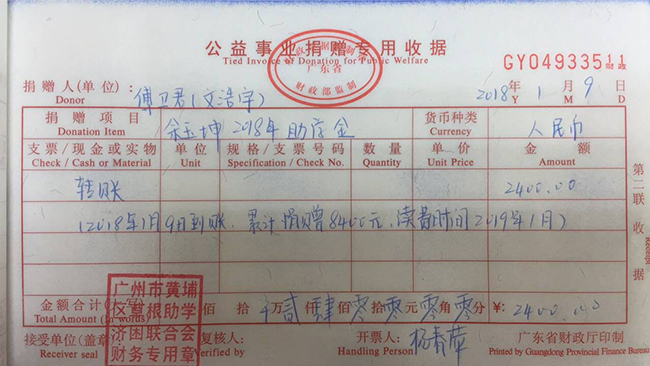 公益事业捐赠专用收据
Tied Invoice of Donation for Public Welfare
广东省
财政部监制
GY04933511
捐赠人(单位): 傅卫君(文浩宇) 2018年1月9日
Donor Y M D
捐赠项目 余玉坤2018年助学金 货币种类 人民币
Donation Item Currency
支票/现金或实物 单位 规格/支票号码 数量 单价 金额
Check / Cash or Material Unit Specification / Check No. Quantity Unit Price Amount
转账 2400.00
(2018年1月9日到账,累计捐赠8400元,续费时间2019年1月)
第二联收据
金额合计(大写) 佰拾千万贰肆佰零拾零元零角零分 ¥: 2400.00
Total Amount (In words)
接受单位(盖章) 复核人: 开票人: 杨春苹 广东省财政厅印制
Receiver seal Verified by Handling Person Printed by Guangdong Provincial Finance Bureau
广州市黄埔
区草根助学
济困联合会
财务专用章